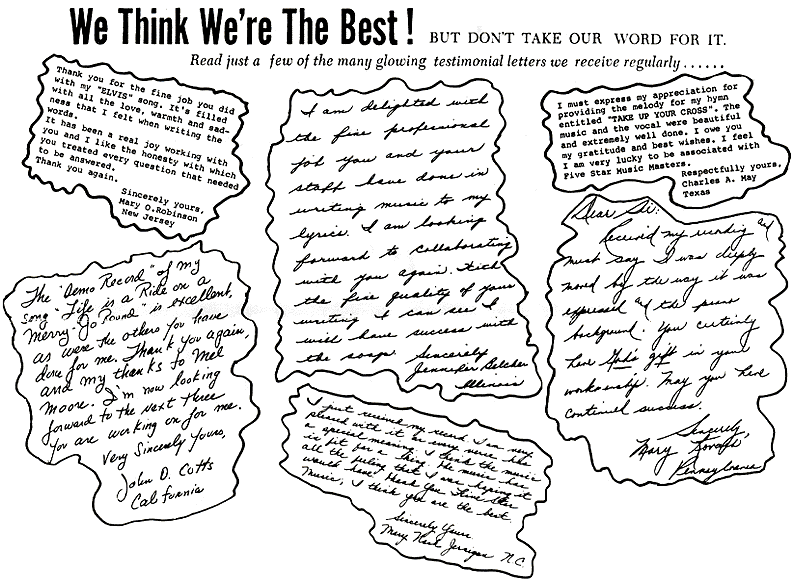 We Think We're The Best! BUT DON'T TAKE OUR WORD FOR IT.
Read just a few of the many glowing testimonial letters we receive regularly......
Thank you for the fine job you did
with my "ELVIS" song. It's filled
with all the love, warmth and sad-
ness that I felt when writing the
words.
It has been a real joy working with
you and I like the honesty with which
you treated every question that needed
to be answered.
Thank you again.
Sincerely yours,
Mary O.Robinson
New Jersey
I am delighted with
the fine professional
job you and your
staff have done in
writing music to my
lyrics. I am looking
forward to collaborating
with you again. With
the fine quality of your
writing I can see I
will have success with
the songs. Sincerely
Jennifer Belcher
Illinois
I must express my appreciation for
providing the melody for my hymn
entitled "TAKE UP YOUR CROSS". The
music and the vocal were beautiful
and extremely well done. I owe you
my gratitude and best wishes. I feel
I am very lucky to be associated with
Five Star Music Masters.
Respectfully yours,
Charles A. May
Texas
The "Demo Record" of my
song "Life is a Ride on a
Merry-Go Round" is excellent,
as were the others you have
done for me. Thank you again,
and my thanks to Mel
Moore. I'm now looking
forward to the next three
you are working on for me.
Very Sincerely Yours,
John D. Cotts
California
Dear Sir:
Received my recording &
must say I was deeply
moved by the way it was
expressed & the piano
background. You certainly
have God's gift in your
workmanship. May you have
continued success.
Sincerely,
Mary
Pennsylvania
I just received my record. I am very
pleased with it as every verse has
a special meaning. I think the music
is fit for a king. The music has
all the feeling that I was hoping it
would have. Thank You Five Star
Music, I think you are the best.
Sincerely Yours
Mary Jernigan N.C.